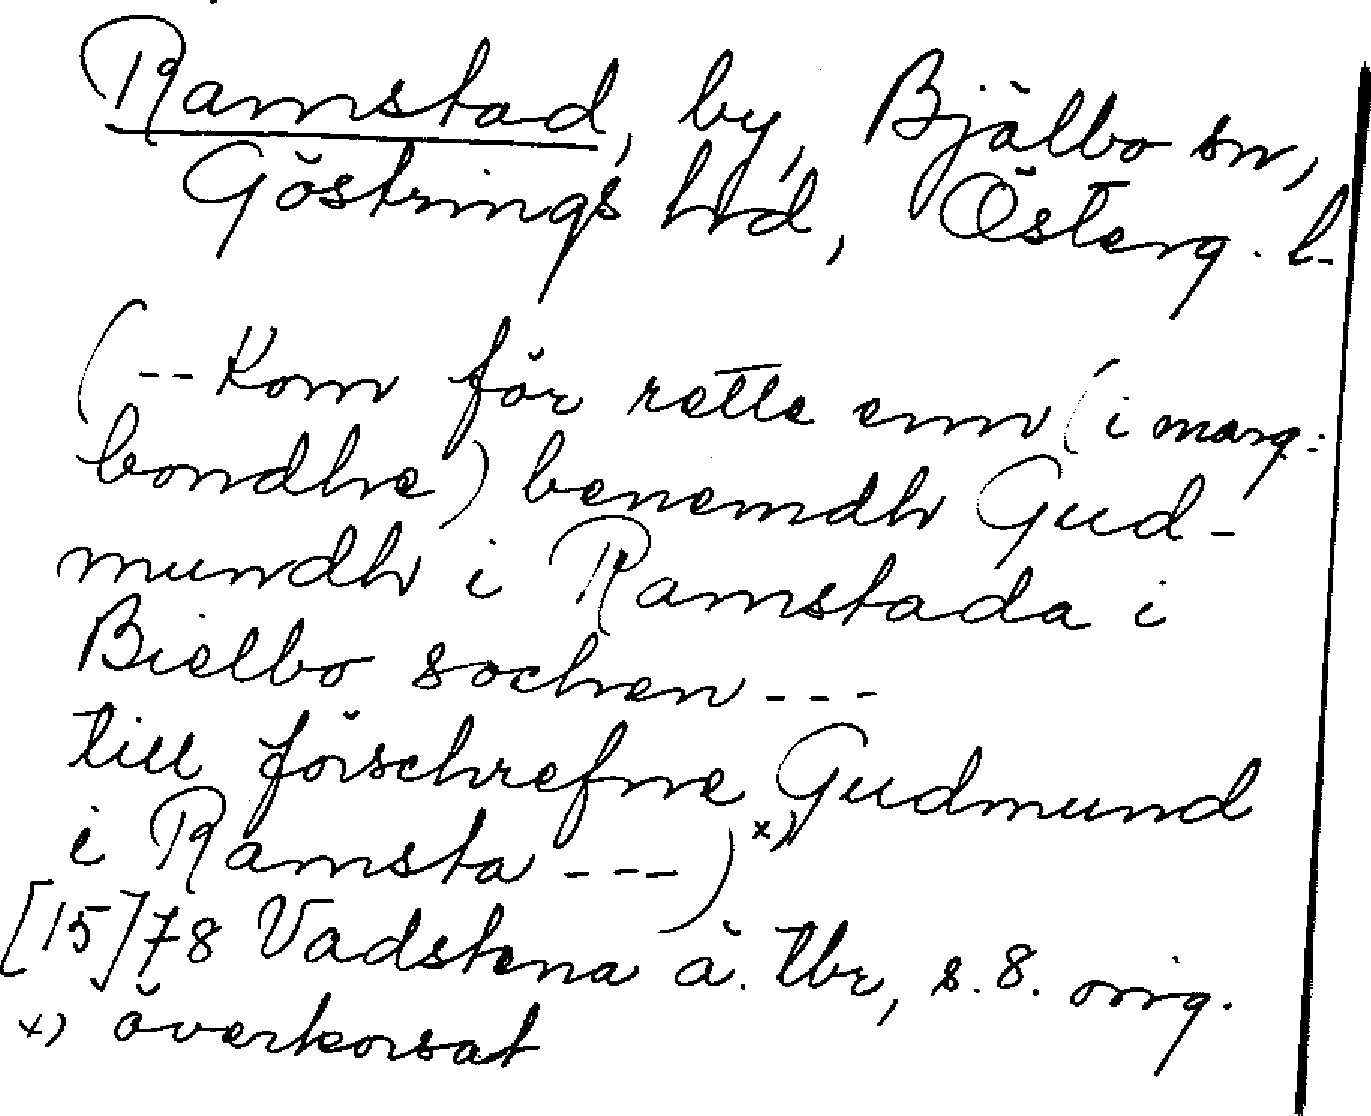 Ramstad, by, Bjälbo sn,
Göstrings hd, Österg. l.
(-- Kom för rette enn (i marg.:
bondhe) benemdh Gud-
mundh i Ramstada i
Bielbo sochen ---
till förschrefne Gudmund
i Ramsta ---) x)
[15]78 Vadstena ä. tbr, s. 8. orig.
x) överkorsat